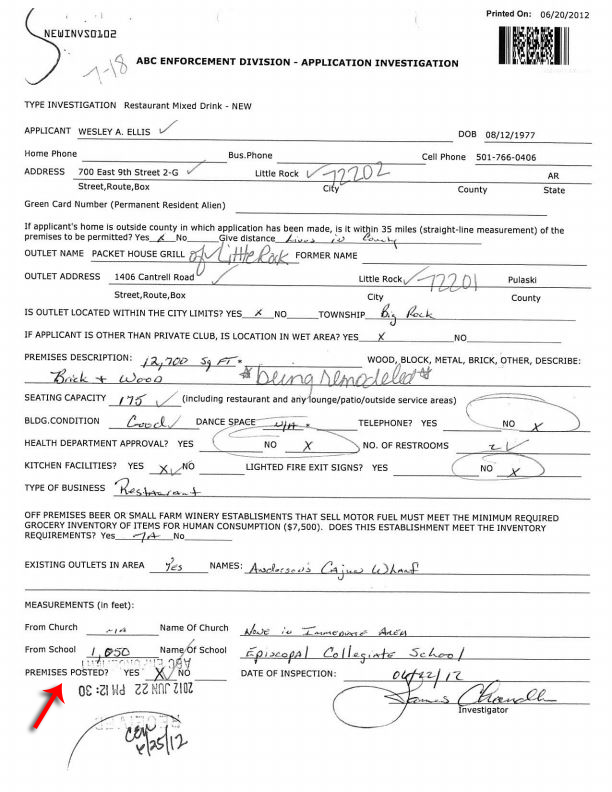 Printed On: 06/20/2012
NEWINVS0102
7-18
ABC ENFORCEMENT DIVISION - APPLICATION INVESTIGATION
TYPE INVESTIGATION Restaurant Mixed Drink - NEW
APPLICANT WESLEY A. ELLIS DOB 08/12/1977
Home Phone Bus.Phone Cell Phone 501-766-0406
ADDRESS 700 East 9th Street 2-G Little Rock 72202 AR
Street,Route,Box City County State
Green Card Number (Permanent Resident Alien)
If applicant's home is outside county in which application has been made, is it within 35 miles (straight-line measurement) of the
premises to be permitted? Yes x No Give distance Lives in County
OUTLET NAME PACKET HOUSE GRILL of Little Rock FORMER NAME
OUTLET ADDRESS 1406 Cantrell Road Little Rock 72201 Pulaski
Street,Route,Box City County
IS OUTLET LOCATED WITHIN THE CITY LIMITS? YES x NO TOWNSHIP Big Rock
IF APPLICANT IS OTHER THAN PRIVATE CLUB, IS LOCATION IN WET AREA? YES X NO
PREMISES DESCRIPTION: 12,700 Sq FT * WOOD, BLOCK, METAL, BRICK, OTHER, DESCRIBE:
Brick + Wood *being remodeled*
SEATING CAPACITY 175 (including restaurant and any lounge/patio/outside service areas)
BLDG.CONDITION Good DANCE SPACE N/A TELEPHONE? YES NO X
HEALTH DEPARTMENT APPROVAL? YES NO X NO. OF RESTROOMS 2
KITCHEN FACILITIES? YES X NO LIGHTED FIRE EXIT SIGNS? YES NO X
TYPE OF BUSINESS Restaurant
OFF PREMISES BEER OR SMALL FARM WINERY ESTABLISMENTS THAT SELL MOTOR FUEL MUST MEET THE MINIMUM REQUIRED
GROCERY INVENTORY OF ITEMS FOR HUMAN CONSUMPTION ($7,500). DOES THIS ESTABLISHMENT MEET THE INVENTORY
REQUIREMENTS? Yes NA No
EXISTING OUTLETS IN AREA Yes NAMES: Anderson's Cajun Wharf
MEASUREMENTS (in feet):
From Church NA Name Of Church None in Immediate Area
From School 1,050 Name Of School Episcopal Collegiate School
PREMISES POSTED? YES X NO DATE OF INSPECTION: 06/22/12
2012 JUN 22 PM 12:30
James
Investigator
6/25/12